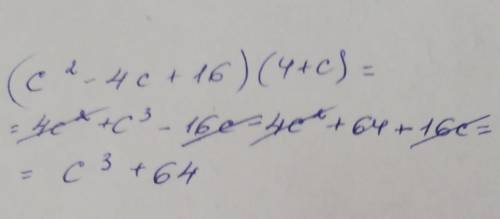 (c² - 4c + 16)(4+c) =
= 4c² + c³ - 16c - 4c² + 64 + 16c =
= c³ + 64